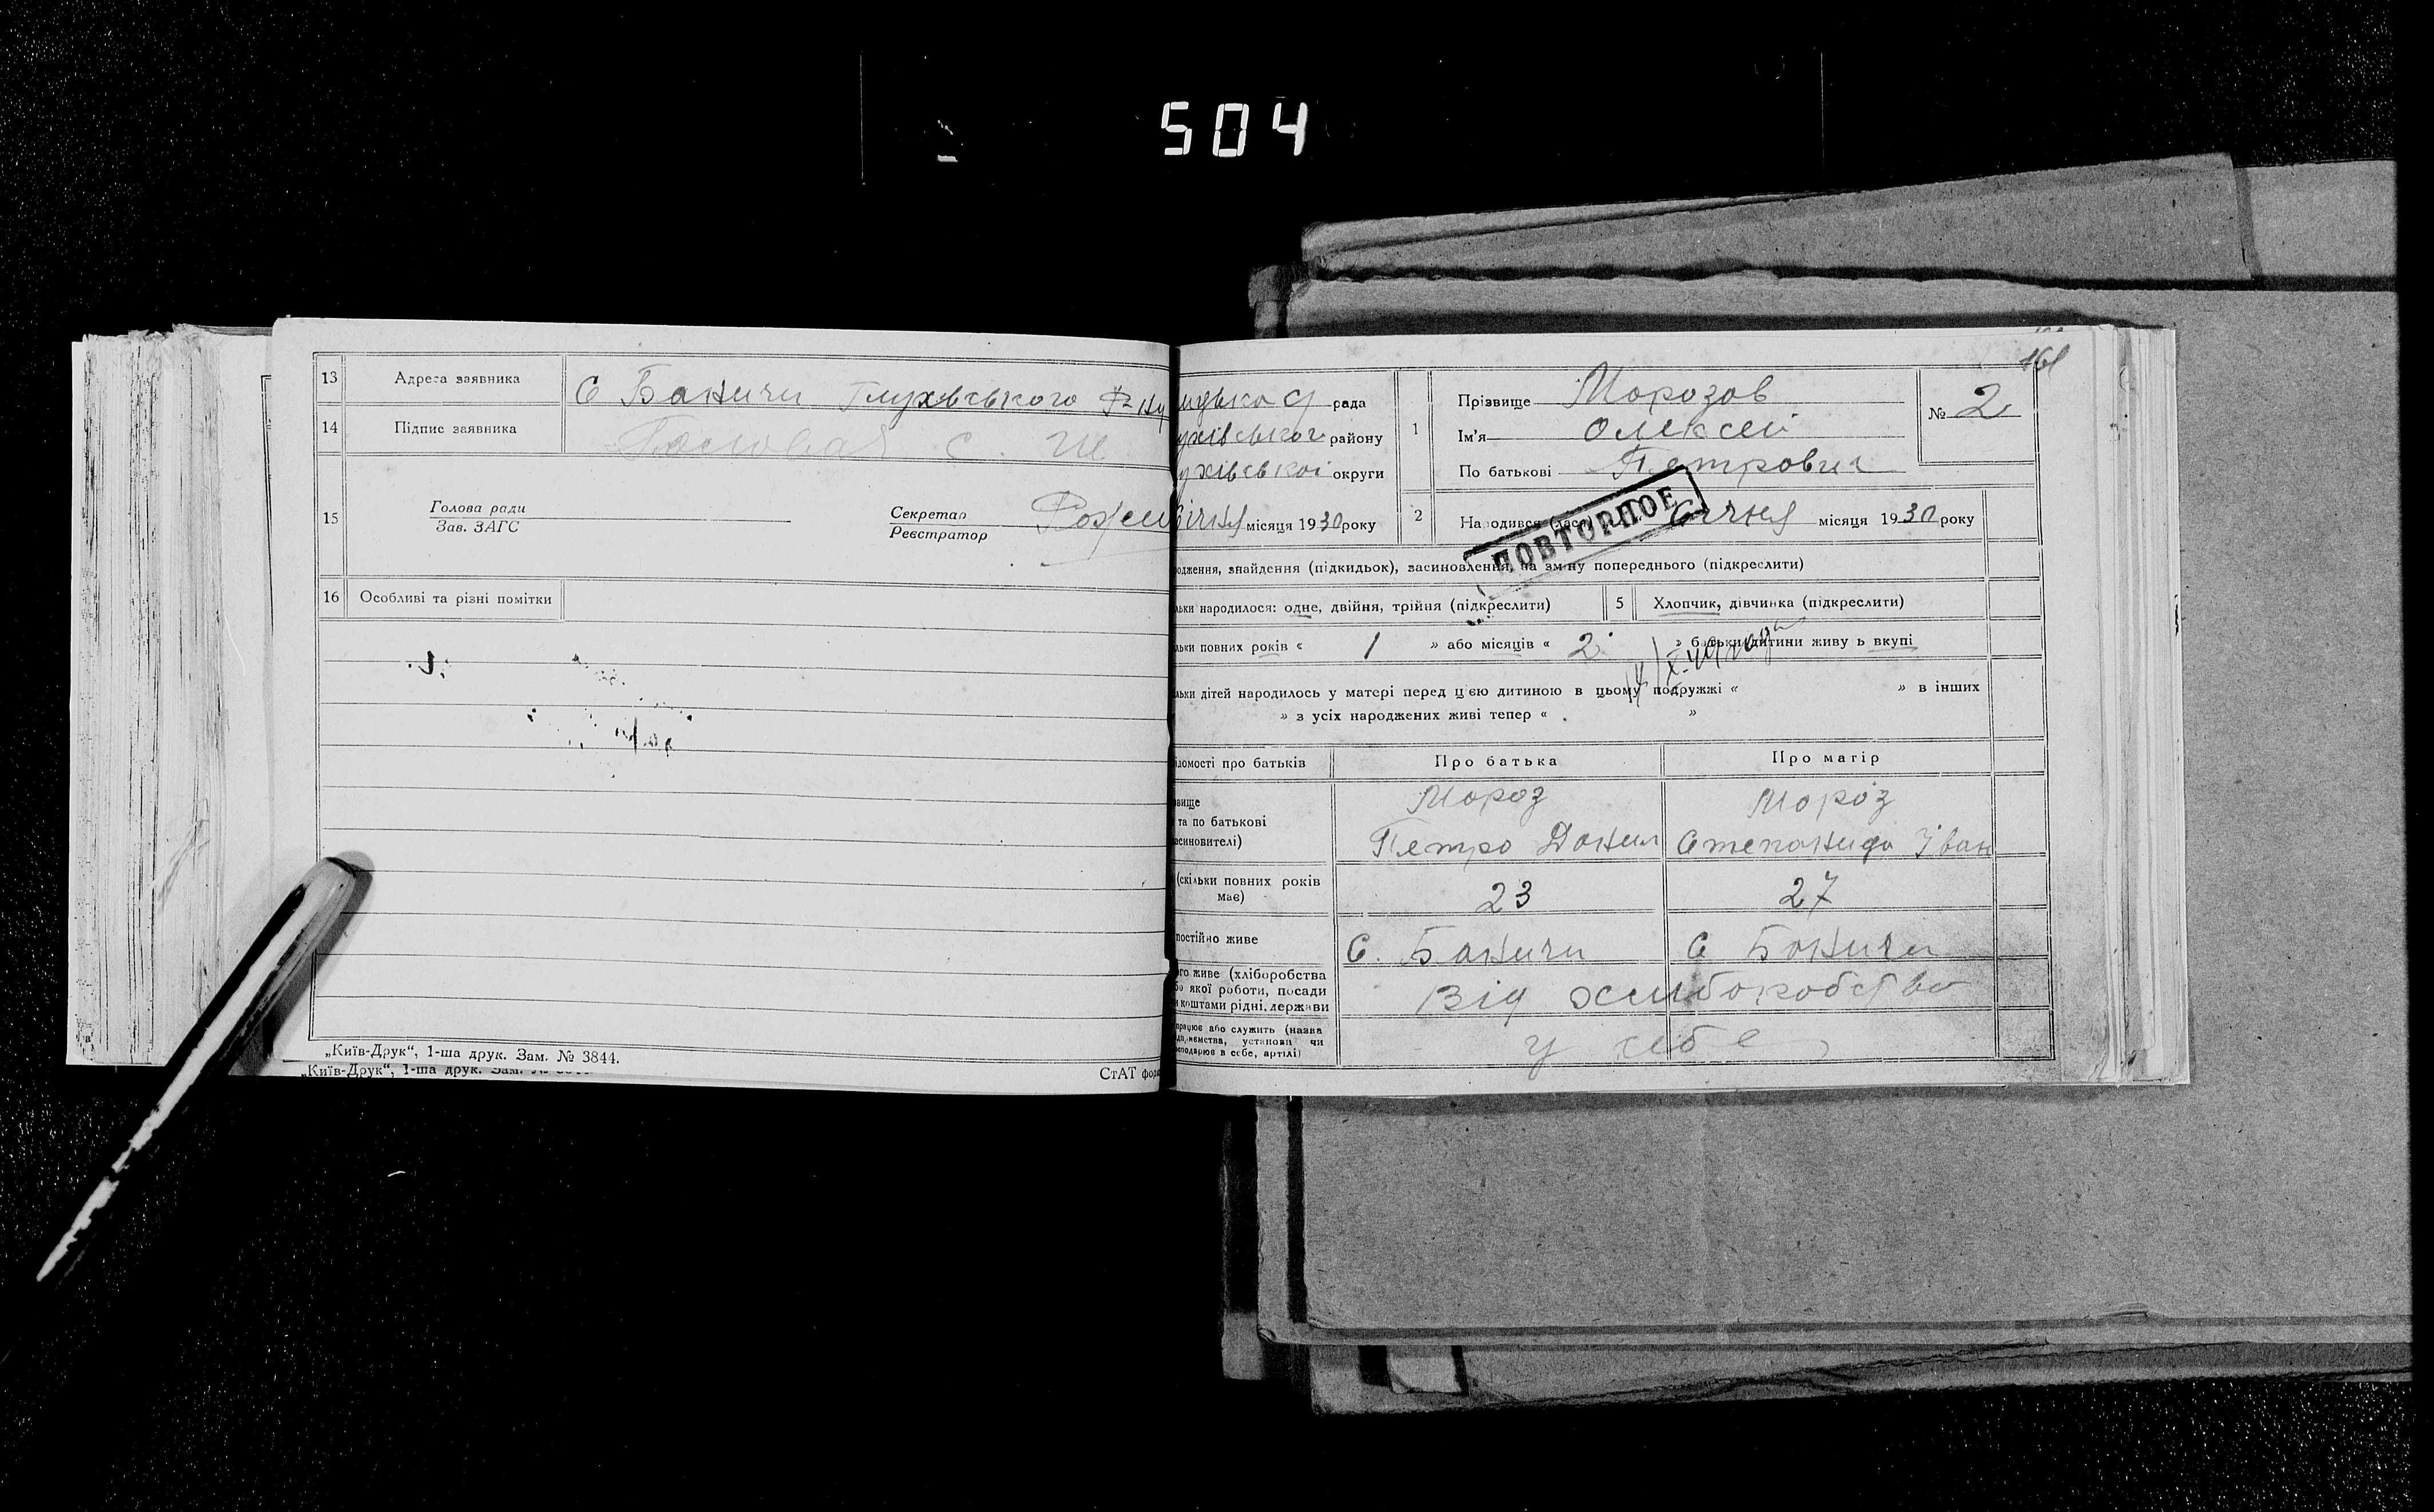 504
13 Адреса заявника С Баничи Глухівського
14 Підпис заявника
15 Голова ради
Зав. ЗАГС
Секретар
Реєстратор
16 Особливі та різні помітки
„Київ-Друк“, 1-ша друк. Зам. № 3844.
„Київ-Друк“, 1-ша друк. Зам.
СтАТ
161
рада
району
округи
місяця 1930 року
1 Прізвище Морозов
Ім'я Олексей
По батькові Петрович
№ 2
2 Народився Січня місяця 1930 року
ПОВТОРНОЕ
одження, знайдення (підкидьок), засиновлення, на зміну попереднього (підкреслити)
льки народилося: одне, двійня, трійня (підкреслити) 5 Хлопчик, дівчинка (підкреслити)
льки повних років « 1 » або місяців « 2 » батьки дитини живуть вкупі
льки дітей народилось у матері перед цією дитиною в цьому подружжі « » в інших
» з усіх народжених живі тепер « »
ідомості про батьків Про батька Про матір
звище Мороз Мороз
та по батькові
асиновителі) Петро Данил Степанида Іван
(скільки повних років
має) 23 27
постійно живе С. Баничи С Баничи
го живе (хліборобства
бо якої роботи, посади
и коштами рідні, держави Від
працює або служить (назва
установи чи
сподарює в себе, артілі) у себе